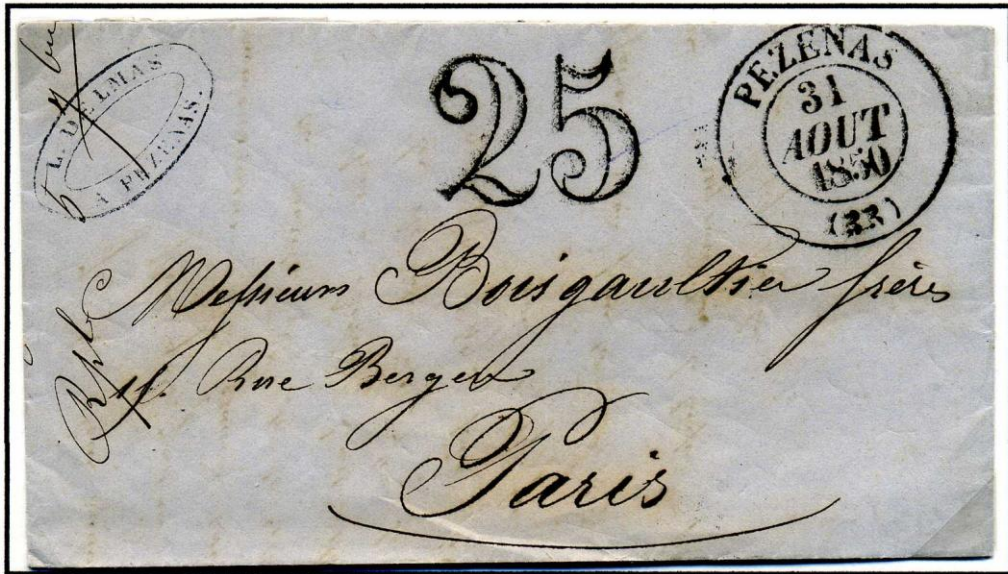 L. DELMAS
A PEZENAS.
25
PEZENAS
31
AOUT
1850
(33)
Messieurs Boisgaultier frères
Rue Berger
Paris